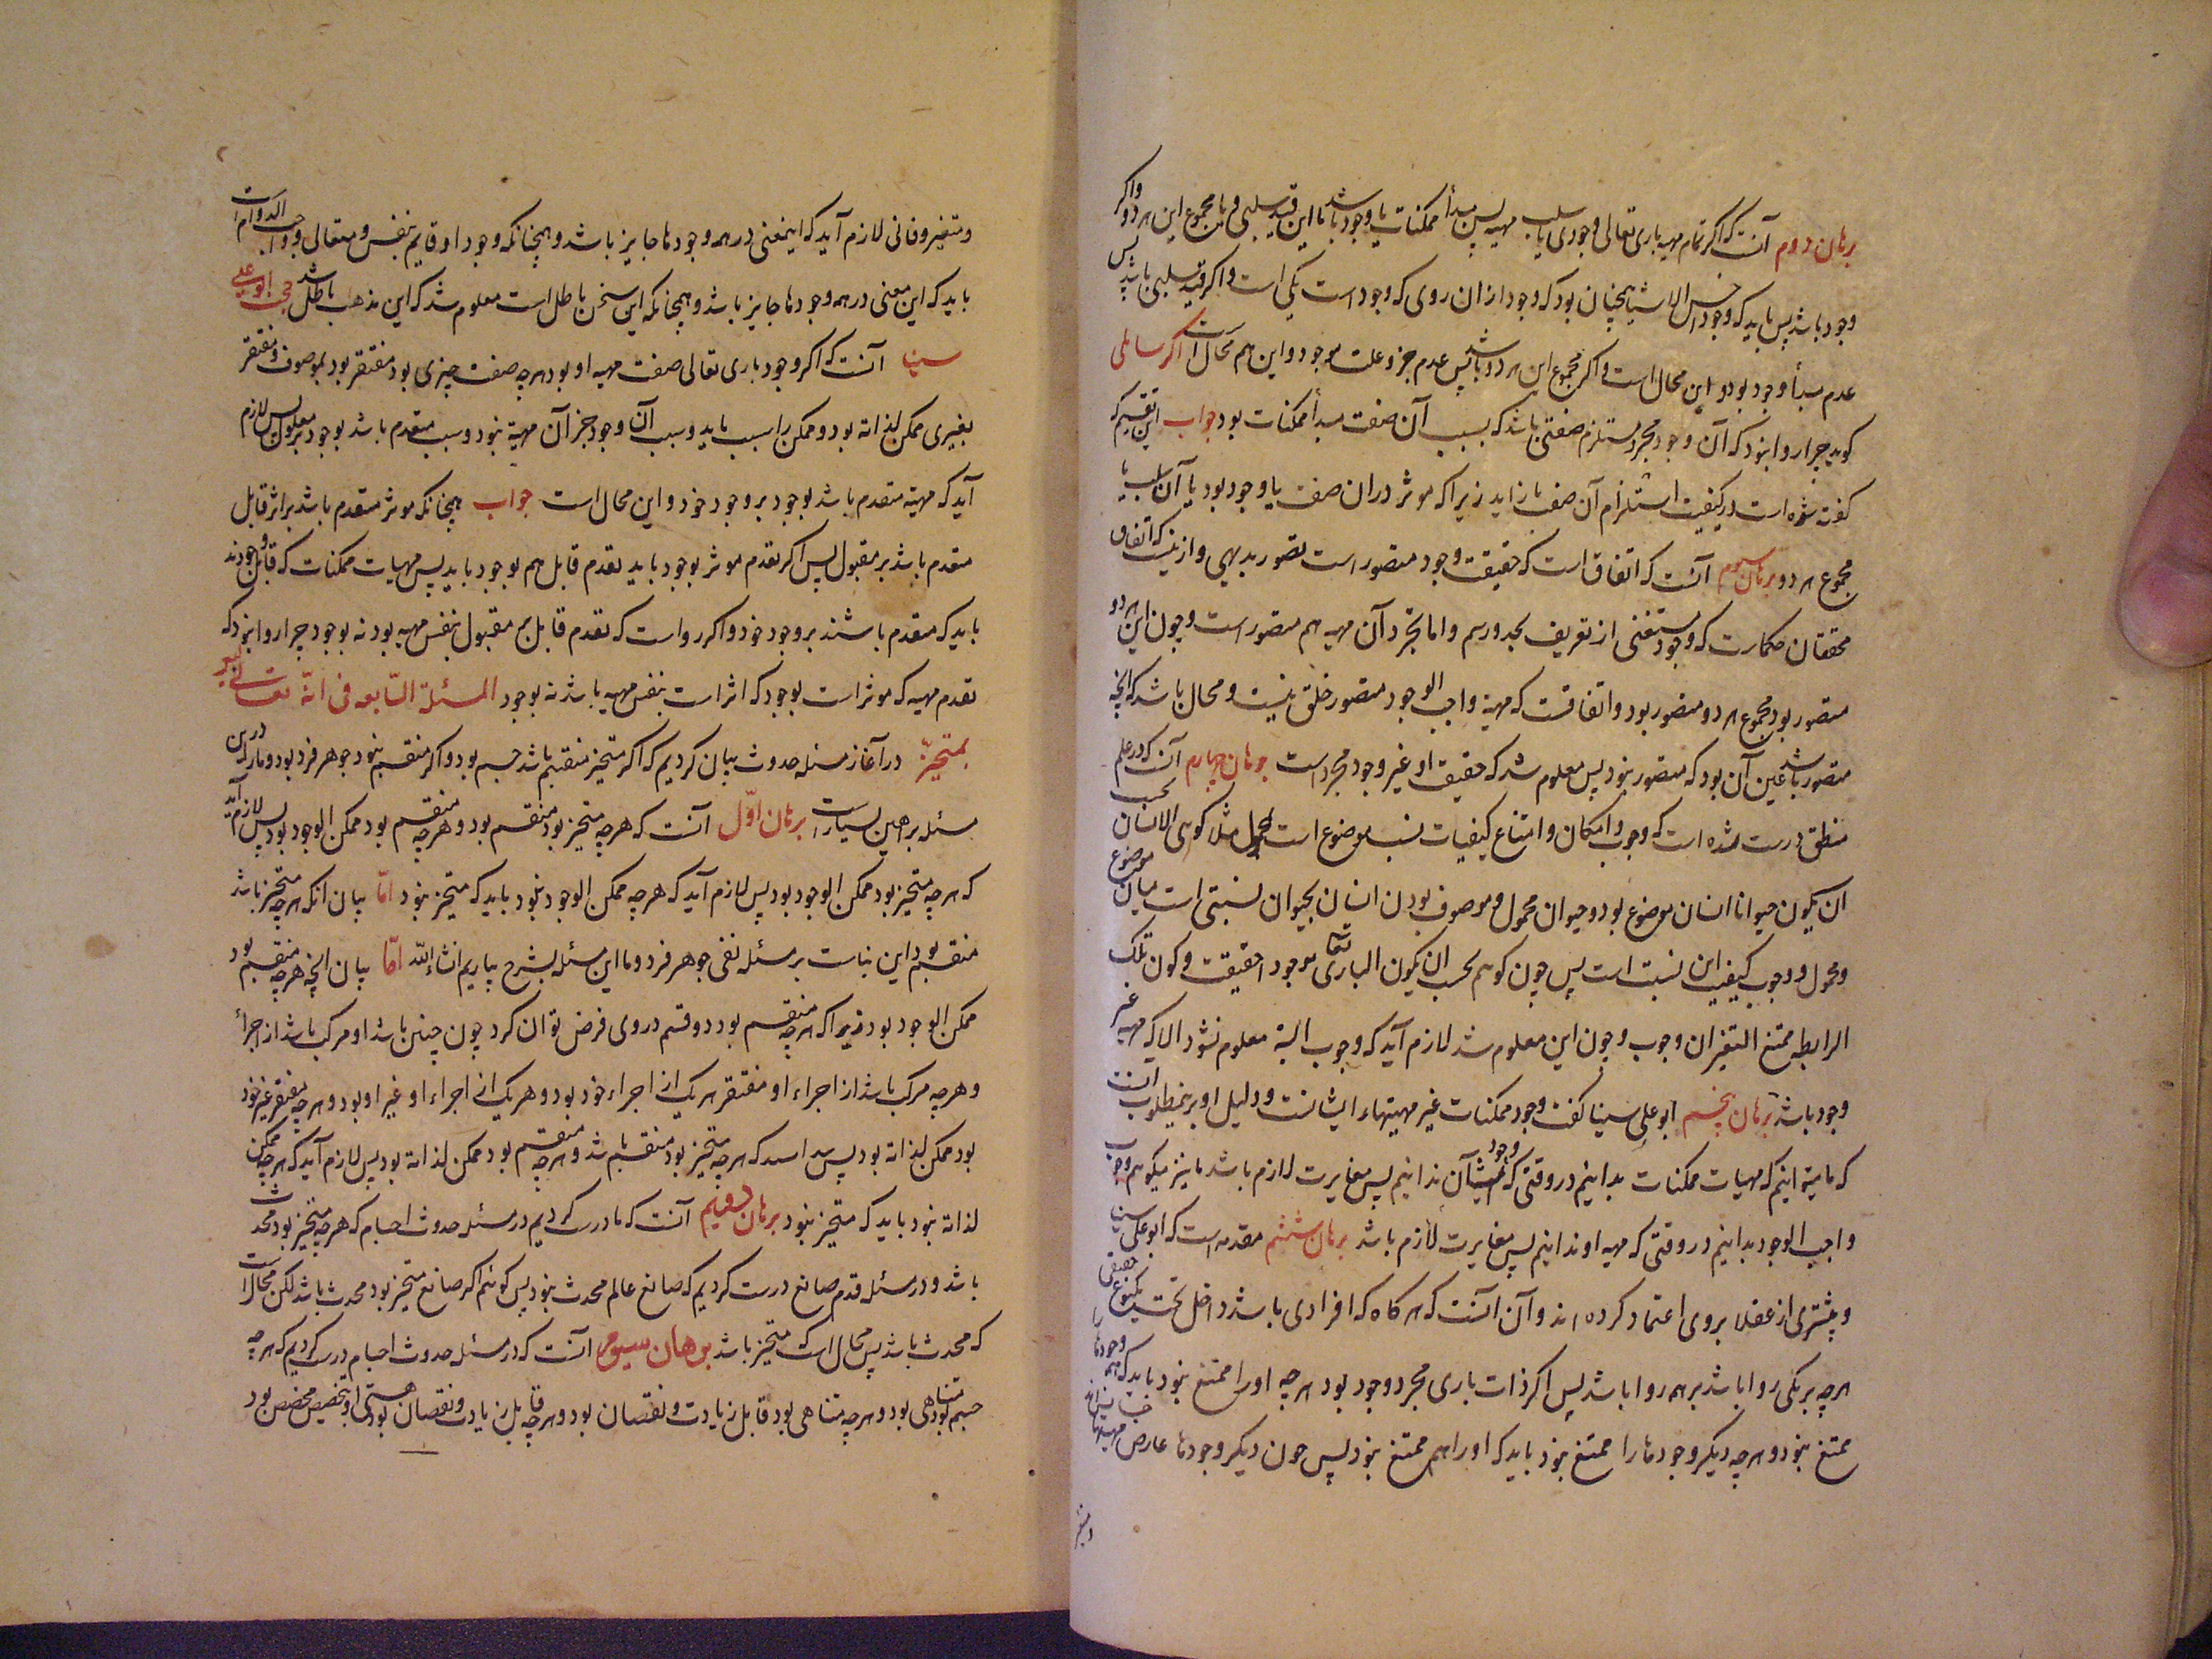 برهان دوم آنست که اکر تمام مهیه باری تعالی وجودی با سلب مهیه پس مبدأ ممکنات یا وجود باشد یا این قید سلبی و یا مجموع این هر دو و اکر
وجود باشد پس باید که وجود اخس الاشیا همچنان بود که وجود از ان روی که وجود است یکی است و اکر قید سلبی باشد پس
عدم مبدأ وجود بود و این محال است و اکر مجموع این هر دو باشد پس عدم جزو علت موجود و این هم محال است اکر سائلی
کوید چرا روا نبود که آن وجود مجرد مستلزم صفتی باشد که بسبب آن صفت مبدأ ممکنات بود جواب این تقسیم که
کفته شده است در کیفیت استلزام آن صفت باز اید زیرا که موثر در ان صفت یا وجود بود یا آن سلب یا
مجموع هر دو برهان سیوم آنست که اتفاق است که حقیقت وجود متصور است تصور بدیهی و ازینست که اتفاق
محققان حکمارت که وجود مستغنی از تعریف بحد و رسم و اما تجرد آن مهیه هم متصور است و چون این هر دو
متصور بود مجموع هر دو متصور بود و اتفاقست که مهیة واجب الوجود متصور خلق نیست و محال باشد که انچه
متصور باشد عین آن بود که متصور نبود پس معلوم شد که حقیقت او غیر وجود مجرد است برهان چهارم آنکه در علم
منطق درست شده است که وجوب و امکان و امتناع کیفیات نسب موضوع است بمحمول مثلا کوهی الانسان یجب
ان یکون حیوانا انسان موضوع بود و حیوان محمول و موصوف بودن انسان بحیوان نسبتی است میان موضوع
و محمول و وجوب کیفیت این نسبت است پس چون کوهم یجب ان یکون الباری تعالی موجودا حقیقت و کون تلک
الرابطه ممتنع التغیر ان وجوب و چون این معلوم شد لازم آید که وجوب البته معلوم نشود الا که مهیه غیر
وجود باشد برهان پنجم ابو علی سینا کفت وجود ممکنات غیر مهیتهاء ایشانست و دلیل او برین مطلوب آنست
که ما میدانیم که مهیات ممکنات بدانیم در وقتی که وجود آن ندانیم پس مغایرت لازم باشد ما نیز میکویم وجوب
واجب الوجود بدانیم در وقتی که مهیه او ندانیم پس مغایرت لازم باشد برهان ششم مقدمه است که ابو علی سینا
و بیشتری از عقلا بر وی اعتماد کرده اند و آن آنست که هر کاه که افرادی باشد داخل تحت یکنوع حقیقی
هرچه بر یکی روا باشد بر همه روا باشد پس اکر ذات باری مجرد وجود بود هرچه او را ممتنع نبود باید که همه وجودها را
ممتنع نبود و هرچه دیکر وجودها را ممتنع نبود باید که او را هم ممتنع نبود پس چون دیکر وجودها عارض مهیتها
و متغیر
و متغیر و فانی لازم آید که اینمعنی در همه وجودها جایز باشد و همچنانکه وجود او قایم بنفس و متعالی و واجب الدوام است
باید که این معنی در همه وجودها جایز باشد و همچنانکه این سخن باطل است معلوم شد که این مذهب باطل باشد حجت ابو علی
سینا آنست که اکر وجود باری تعالی صفت مهیه او بود هرچه صفت چیزی بود مفتقر بود بموصوف و مفتقر
بغیری ممکن لذاته بود و ممکن را سبب باید و سبب آن وجود جز آن مهیة نبود و سبب متقدم باشد بوجود بر معلول پس لازم
آید که مهیة متقدم باشد بوجود بر وجود خود و این محال است جواب همچنانکه موثر متقدم باشد بر اثر قابل
متقدم باشد بر مقبول پس اکر تقدم موثر بوجود باید تقدم قابل هم بوجود باید پس مهیات ممکنات که قابل وجودند
باید که متقدم باشند بر وجود خود و اکر رواست که تقدم قابل بر مقبول بنفس مهیه بود نه بوجود چرا روا نبود که
تقدم مهیه که موثر است بوجود که اثر است بنفس مهیه باشد نه بوجود المسئلة السّابعه فی انّه تعالی لیس
بمتحیّز در آغاز مسئله حدوث بیان کردیم که اکر متحیز منقسم باشد جسم بود و اکر منقسم نبود جوهر فرد بود و ما را درین
مسئله براهین بسیارست برهان اوّل آنست که هرچه متحیز بود منقسم بود و هرچه منقسم بود ممکن الوجود بود پس لازم آید
که هرچه متحیز بود ممکن الوجود بود پس لازم آید که هرچه ممکن الوجود نبود باید که متحیز نبود امّا بیان انکه هرچه متحیز باشد
منقسم بود این بناست بر مسئله نفی جوهر فرد و ما این مسئله بشرح بیاریم انشاءالله امّا بیان انچه هرچه منقسم بود
ممکن الوجود بود زیرا که هرچه منقسم بود دو قسم در وی فرض توان کرد چون چنین باشد او مرکب باشد از اجزأ
و هرچه مرکب باشد از اجزاء او مفتقر هر یک از اجزاء خود بود و هر یک از اجزاء او غیر او بود و هرچه مفتقر غیر خود
بود ممکن لذاته بود پس که هرچه متحیز بود منقسم باشد و هرچه منقسم بود ممکن لذاته بود پس لازم آید که هرچه ممکن
لذاته نبود باید که متحیز نبود برهان دویم آنست که ما درست کردیم در مسئله حدوث اجسام که هرچه متحیز بود محدث
باشد و در مسئله قدم صانع درست کردیم که صانع عالم محدث نبود پس کوئیم اکر صانع متحیز بود محدث باشد لکن محال است
که محدث باشد پس محال است که متحیز باشد برهان سیوم آنست که در مسئله حدوث اجسام درست کردیم که هرچه
جسم بود متناهی بود و هرچه متناهی بود قابل زیادت و نقصان بود و هرچه قابل زیادت و نقصان بود هستی او بتخصیص مخصص بود